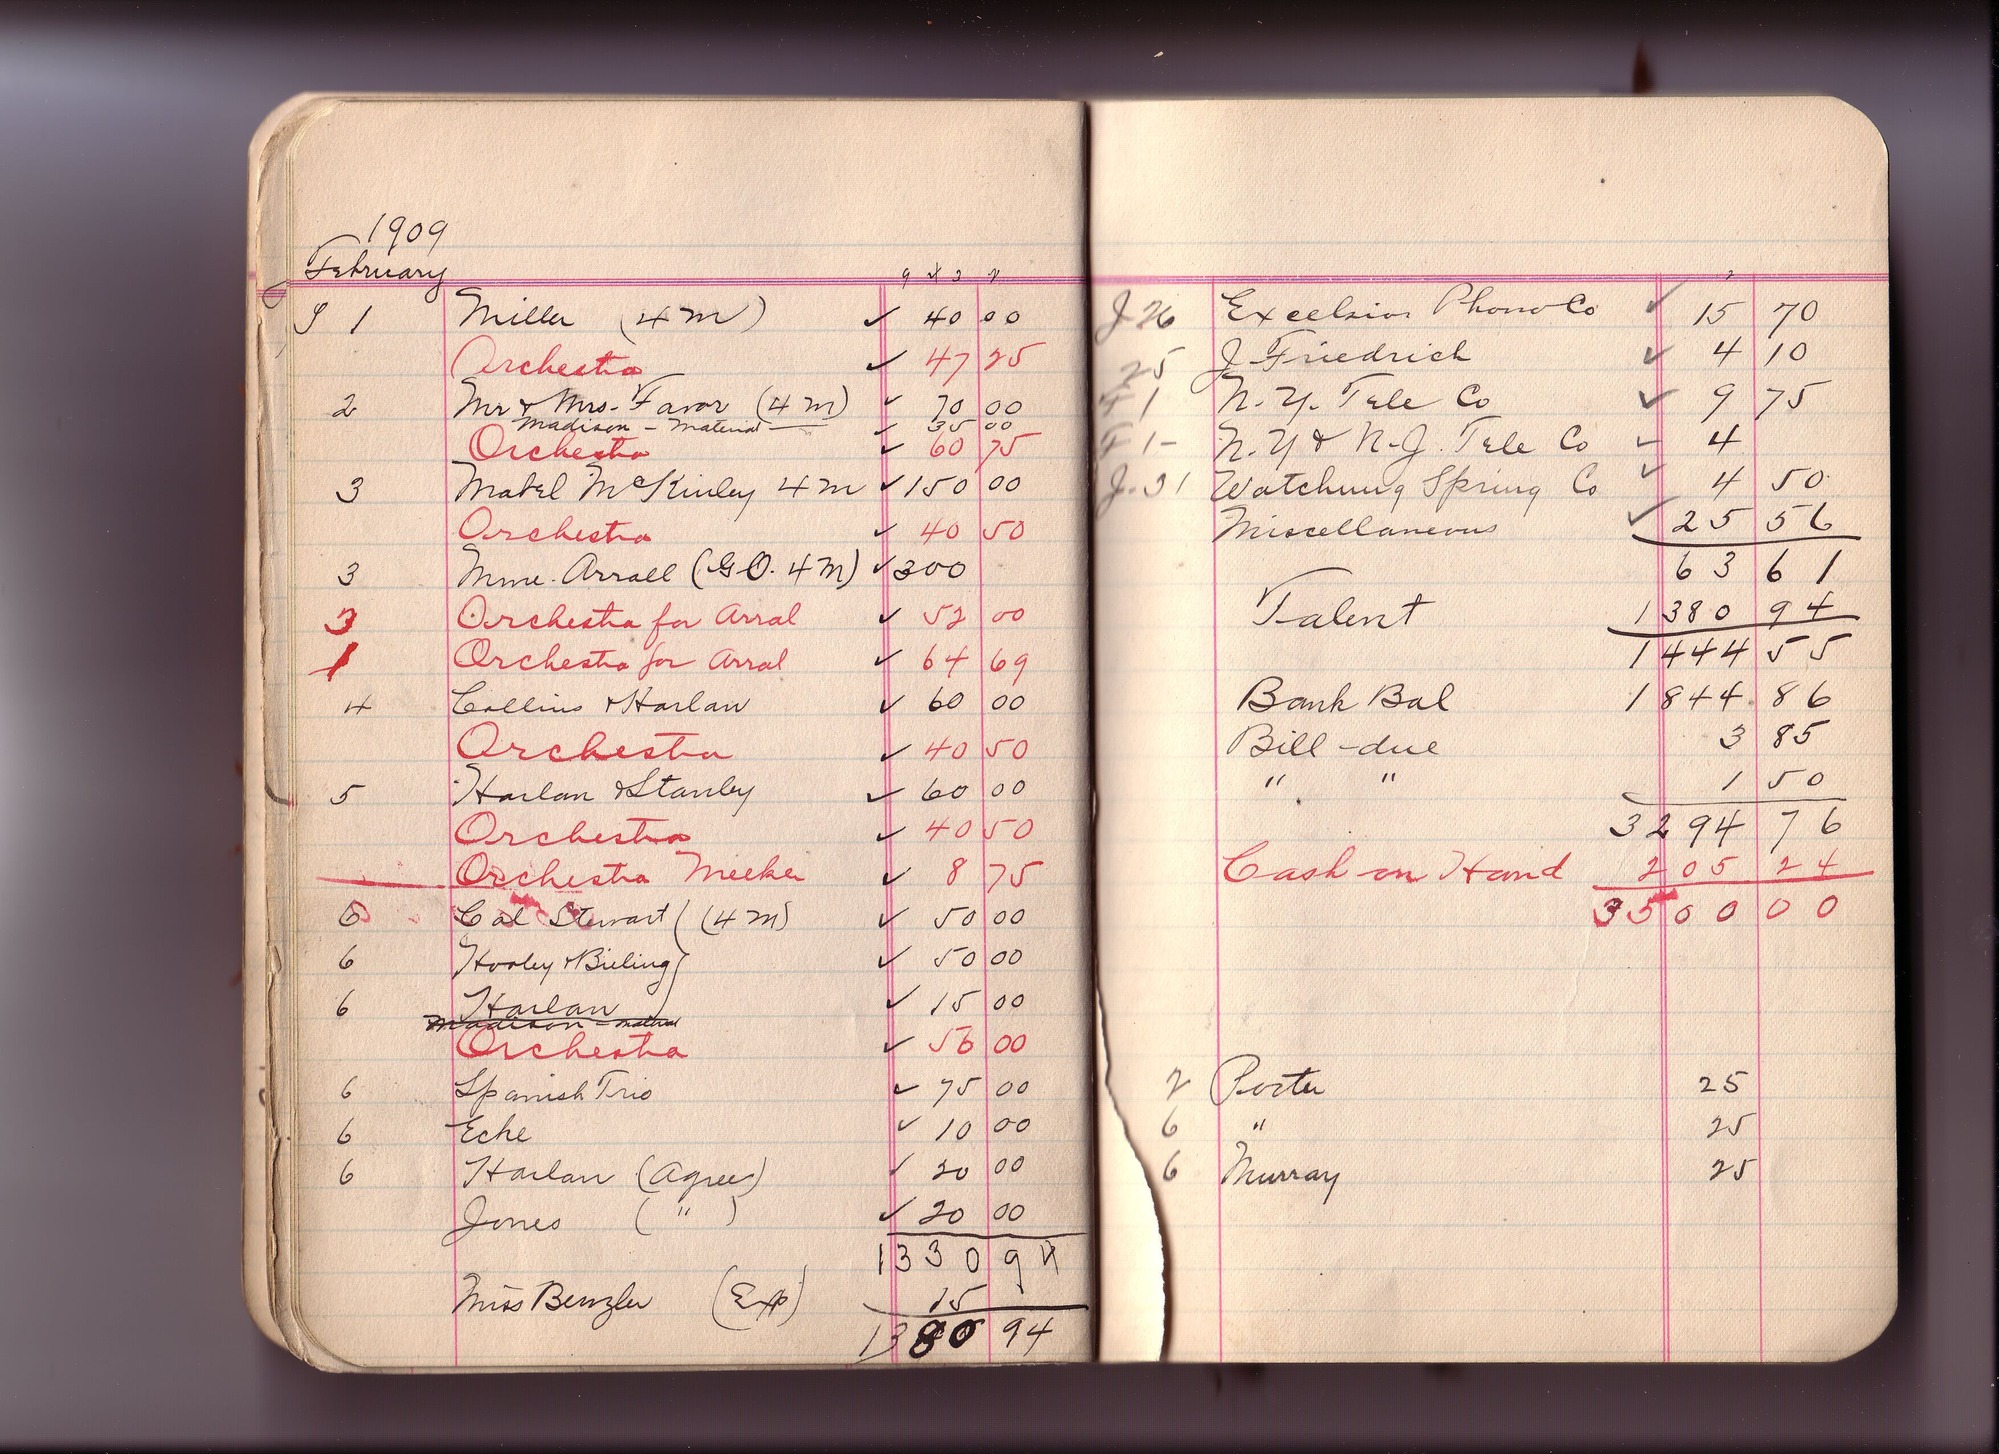 1909
February
9 x 3 2
1 Miller (4 M) ✓ 40 00
Orchestra ✓ 47 25
2 Mr & Mrs. Favor (4 M) ✓ 70 00
Madison - material ✓ 35 00
Orchestra ✓ 60 75
3 Mabel McKinley 4 M ✓ 150 00
Orchestra ✓ 40 50
3 Mme. Arrall (G.O. 4 M) ✓ 300
3 Orchestra for Arral ✓ 52 00
1 Orchestra for Arral ✓ 64 69
4 Collins & Harlan ✓ 60 00
Orchestra ✓ 40 50
5 Harlan & Stanley ✓ 60 00
Orchestra ✓ 40 50
Orchestra Meeker ✓ 8 75
6 Cal Stewart (4 M) ✓ 50 00
6 Hooley & Bieling ✓ 50 00
6 Harlan ✓ 15 00
Madison - material
Orchestra ✓ 56 00
6 Spanish Trio ✓ 75 00
6 Eche ✓ 10 00
6 Harlan (Agree) ✓ 20 00
Jones ( " ) ✓ 20 00
1330 94
Miss Benzler (Exp) 15
1380 94
J 26 Excelsior Phono Co ✓ 15 70
25 J. Friedrich ✓ 4 10
F 1 N. Y. Tele Co ✓ 9 75
F 1- N. Y & N. J. Tele Co ✓ 4
J. 31 Watchung Spring Co ✓ 4 50
Miscellaneous ✓ 25 56
63 61
Talent 1380 94
1444 55
Bank Bal 1844.86
Bill-due 3 85
" " 1 50
3294 76
Cash on Hand 205 24
3500 00
2 Porter 25
6 " 25
6 Murray 25